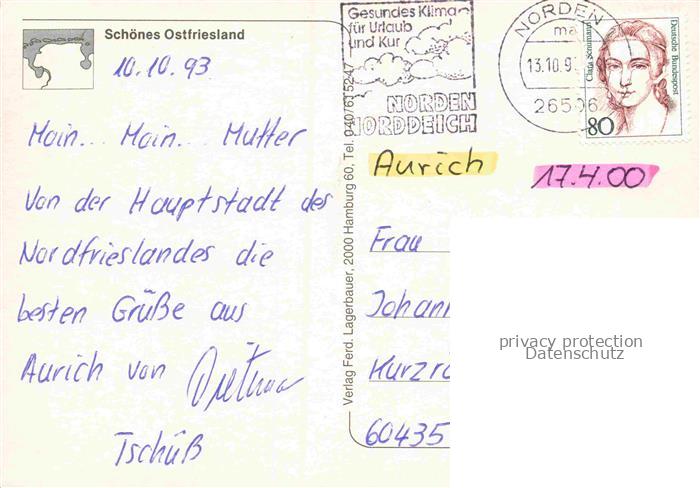 Schönes Ostfriesland
10.10.93
Moin... Moin... Mutter
Von der Hauptstadt des
Nordfrieslandes die
besten Grüße aus
Aurich von Dietmar
Tschüß
Verlag Ferd. Lagerbauer, 2000 Hamburg 60, Tel. 040/6315247
Gesundes Klima
für Urlaub
und Kur
NORDEN
NORDDEICH
NORDEN
ma
13.10.9
26506
Deutsche Bundespost
Clara Schumann
80
Aurich
17.4.00
Frau
Johann
Kurzrö
60435
privacy protection
Datenschutz